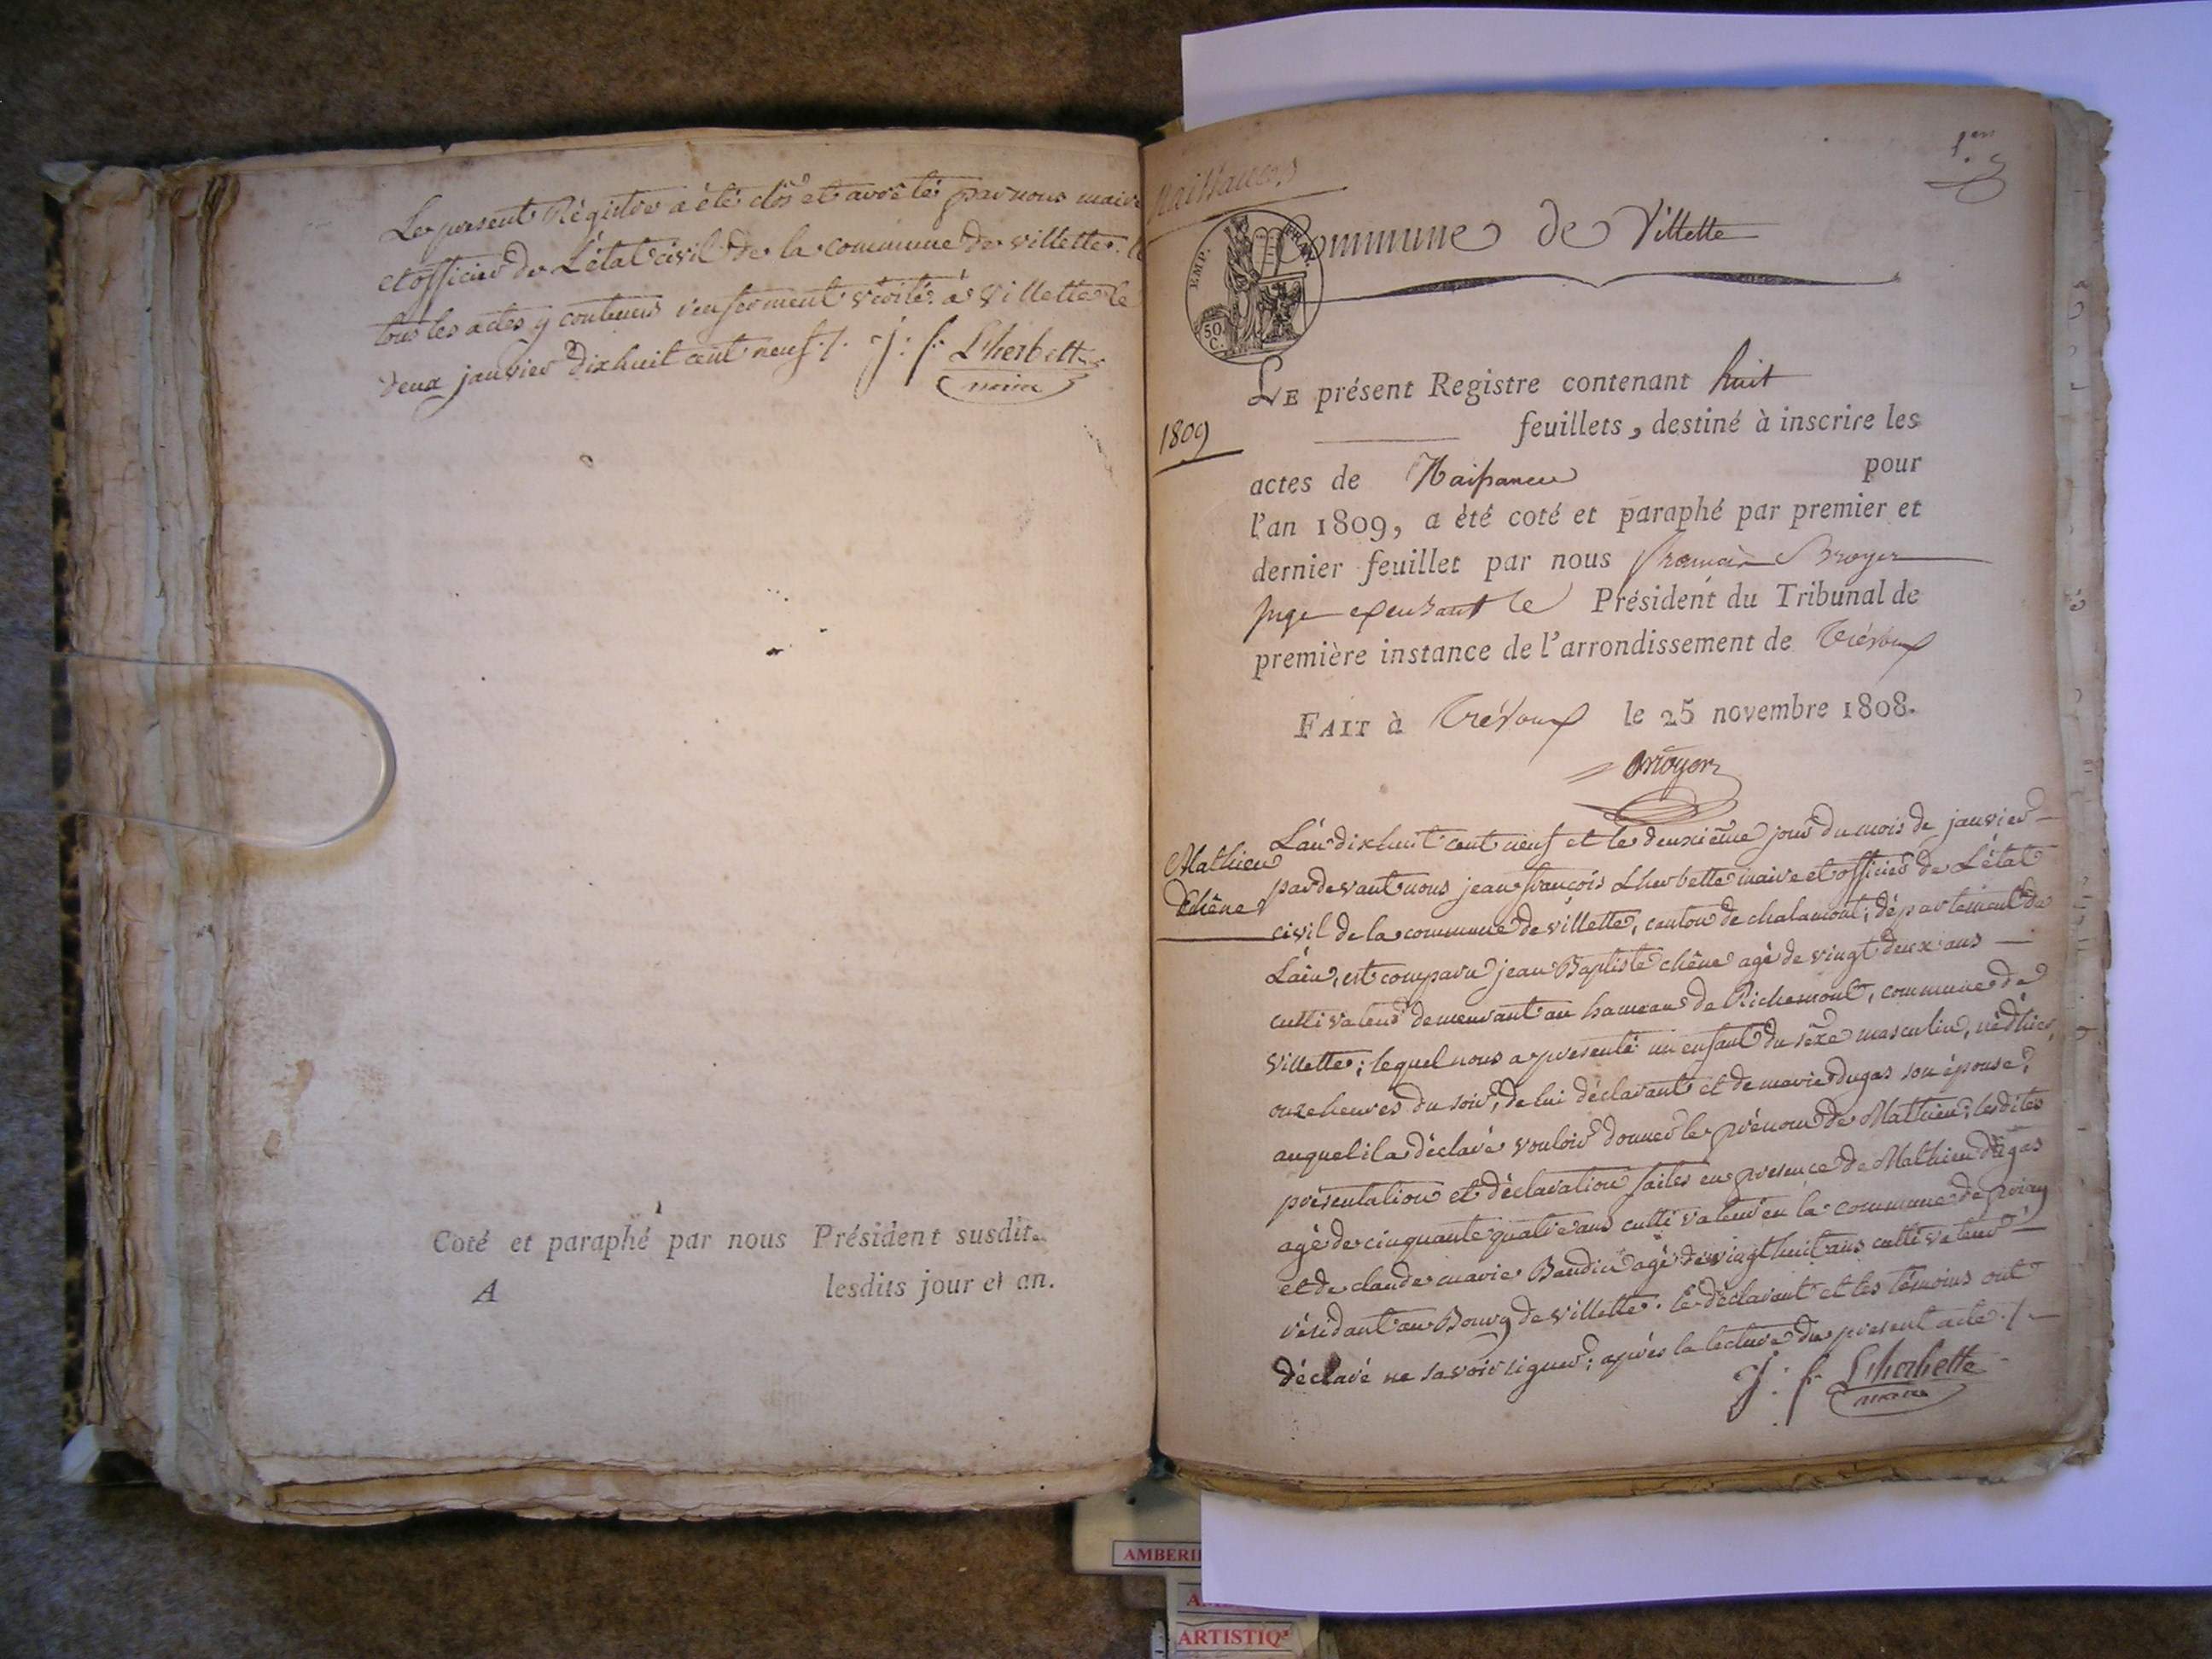 Le present Régistre a été clos et arrêté par nous maire
et officier de L'état civil de la commune de villette.
tous les actes y contenus renferment vérité. à villette le
deux janvier dixhuit cent neuf ./. J: f: Lherbette
maire
Coté et paraphé par nous Président susdit.
A lesdits jour et an.
1er
Naissances
Commune de Villette
EMP. FRAN.
50.
C.
LE présent Registre contenant huit
feuillets, destiné à inscrire les
1809
actes de Naissances pour
l'an 1809, a été coté et paraphé par premier et
dernier feuillet par nous
juge le Président du Tribunal de
première instance de l'arrondissement de Trévoux
FAIT à Trévoux le 25 novembre 1808.
Mathieu
Chêne
L'an dixhuit cent neuf et le deuxième jour du mois de janvier
pardevant nous jean françois Lherbette maire et officier de L'état
civil de la commune de villette, canton de chalamont, département de
L'ain, est comparu jean Baptiste chêne agé de vingt deux ans
cultivateur demeurant au hameau de Richemont, commune de
villette; lequel nous a presenté un enfant du sexe masculin, né d'hier
onze heures du soir, de lui déclarant et de marie dugas son épouse,
auquel il a déclaré vouloir donner le prénom de Mathieu; lesdites
présentation et déclaration faites en presence de Mathieu dugas
agé de cinquante quatre ans cultivateur en la commune de priay
et de claude marie Baudin agé de vingt huit ans cultivateur
résidant au Bourg de villette. Le déclarant et les témoins ont
déclaré ne savoir signer; après la lecture du present acte ./.
J: f: Lherbette
maire
AMBERI
ARTISTIQ